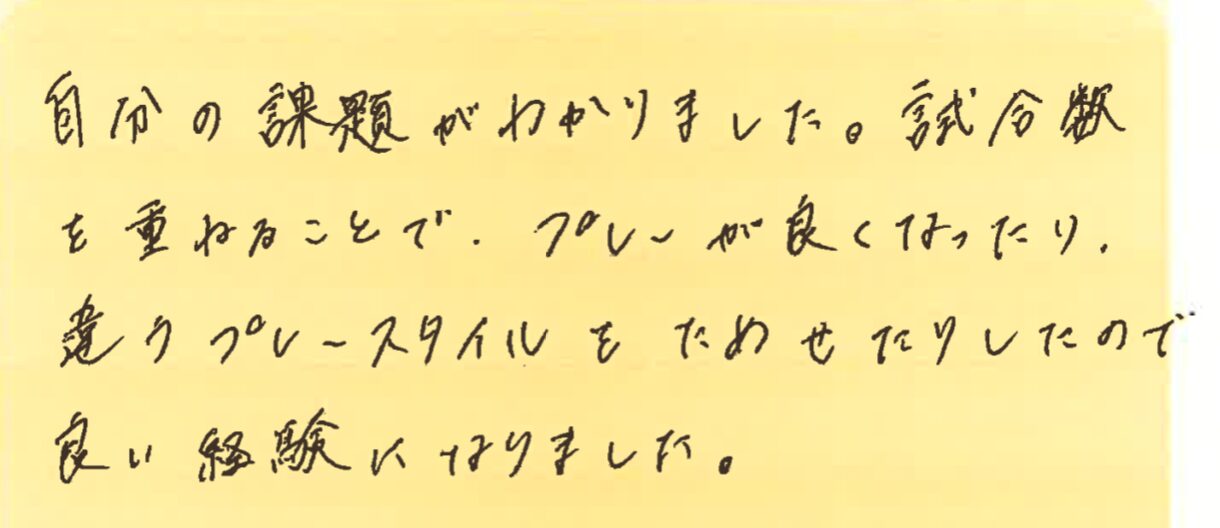 自分の課題がわかりました。試合数
を重ねることで、プレーが良くなったり、
違うプレースタイルをためせたりしたので
良い経験になりました。